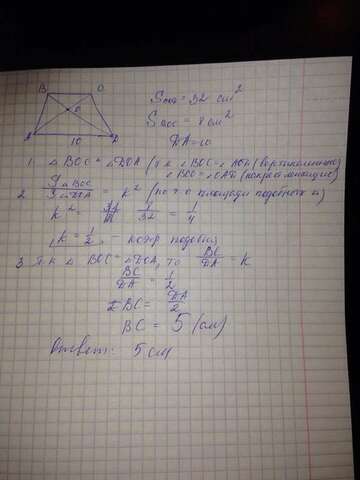 B C
O
A 10 D
S = 32 см²
S BOC = 8 см²
DA = 10
1. △ BOC ~ △ DOA (т.к ∠ BOC = ∠ AOD (вертикальные)
∠ BCO = ∠ OAD (накрест лежащие)
2. S△BOC / S△DOA = k² (по т о площади подобных △)
k² = 8/32 = 1/4
k = 1/2 - коэф подобия
3. Т.к △ BOC ~ △ DOA, то BC/DA = k
BC/DA = 1/2
BC = DA/2
BC = 5 (см)
Ответ: 5 см